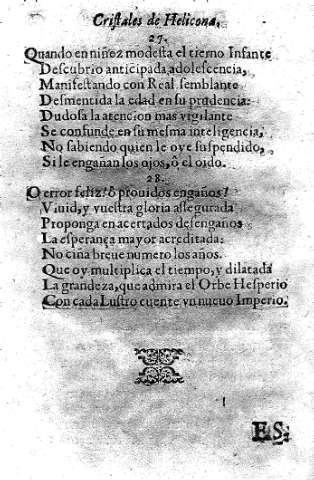 Cristales de Helicona,
27.
Quando en niñez modesta el tierno Infante
Descubrio anticipada adolescencia,
Manifestando con Real semblante
Desmentida la edad en su prudencia:
Dudosa la atencion mas vigilante
Se confunde en su mesma inteligencia,
No sabiendo quien le oye suspendido,
Si le engañan los ojos, ò el oido.
28.
O error feliz! ô prouidos engaños!
Viuid, y vuestra gloria assegurada
Proponga en acertados desengaños
La esperança mayor acreditada:
No ciña breue numero los años.
Que oy multiplica el tiempo, y dilatada
La grandeza, que admira el Orbe Hesperio
Con cada Lustro cuente vn nueuo Imperio.
ES